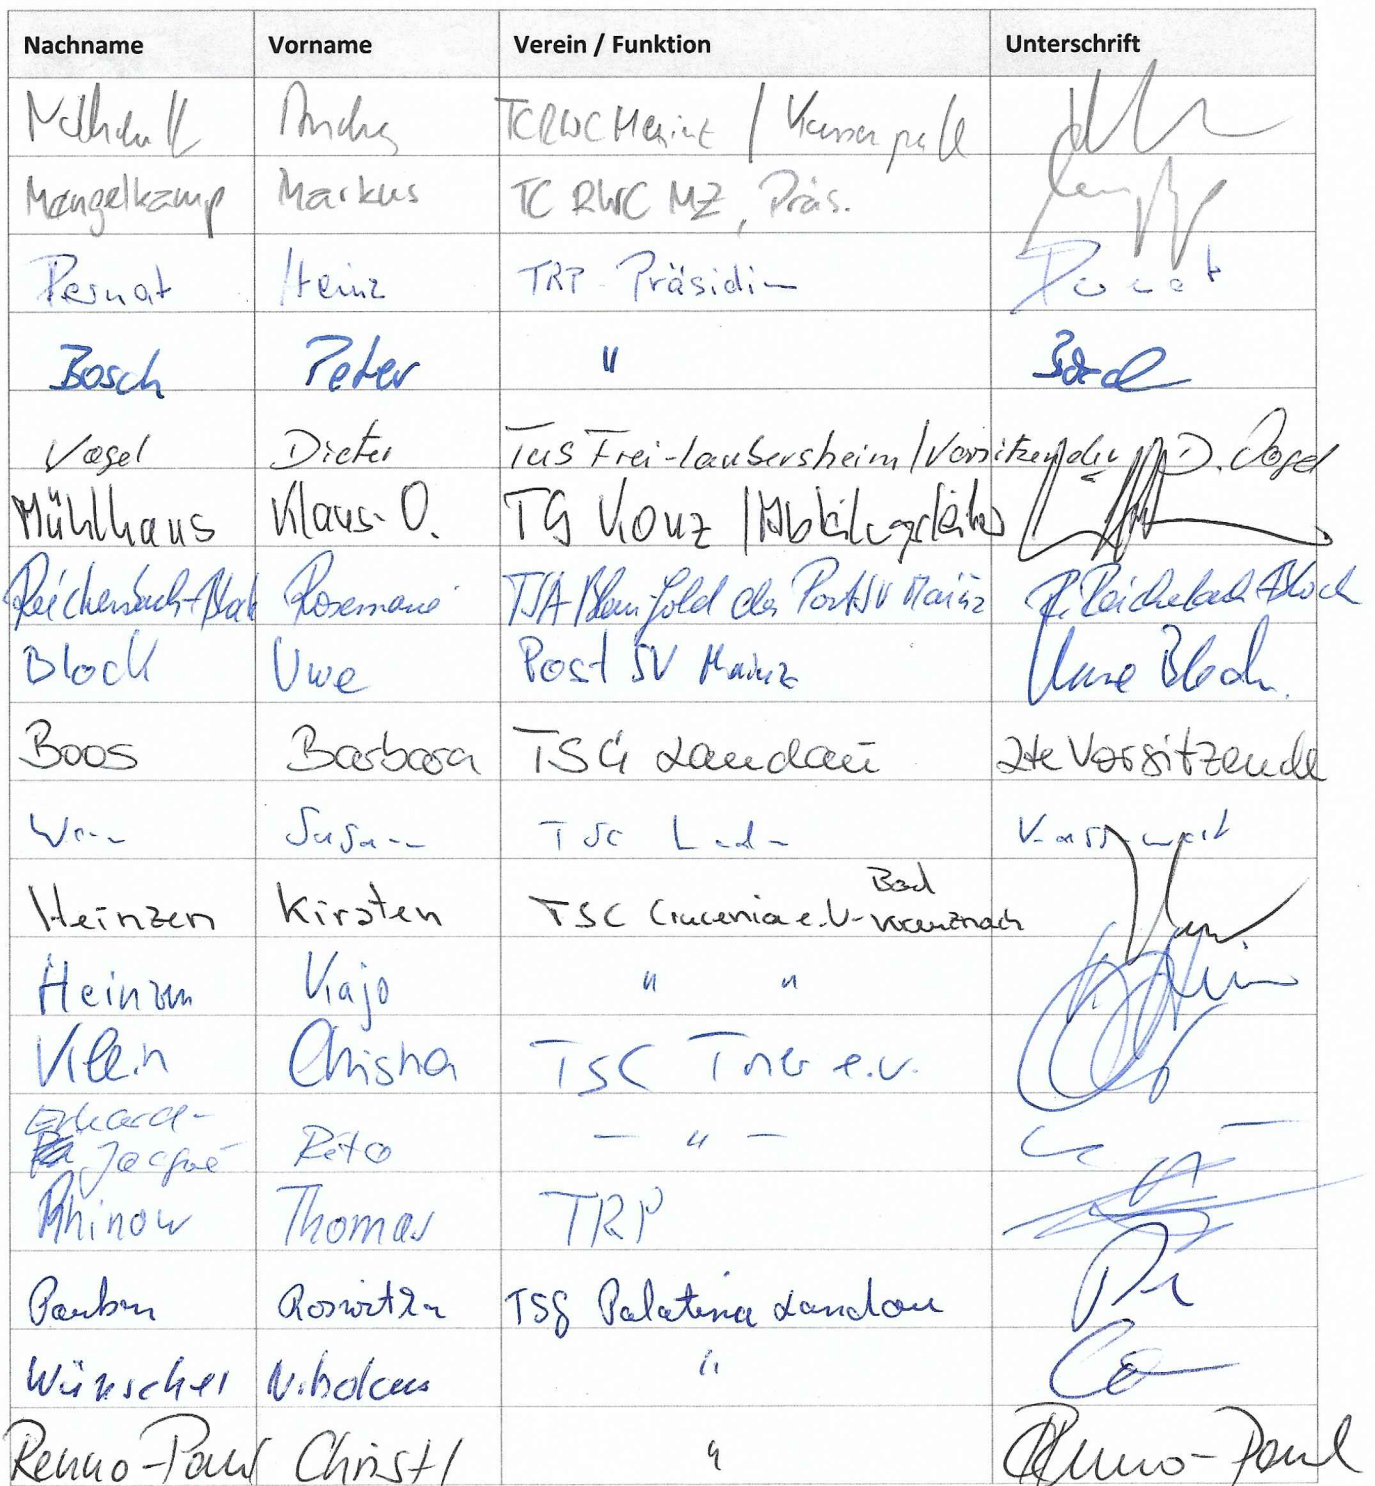 Nachname Vorname Verein / Funktion Unterschrift
TC RWC
Mengelkamp Markus TC RWC MZ, Präs.
Pernat Heinz TRP - Präsidium Pernat
Bosch Peter " Bosch
Vogel Dieter TuS Frei-Laubersheim / Vorsitzender D. Vogel
Mühlhaus Klaus-O. TG Konz / Abteilungsleiter
Reichenbach-Block Rosemarie TSA Blau Gold des Post SV Mainz R. Reichenbach-Block
Block Uwe Post SV Mainz Uwe Block
Boos Barbara TSG Landau 2te Vorsitzende
TSC
Bad
Heinzen Kirsten TSC Crucenia e.V. - Kreuznach
Heinzen Kajo " "
Klein Christina TSC Trier e.V.
Erhard-
Jacqué Rita - " -
Rhinow Thomas TRP
Roswitha TSG Palatina Landau
Wünscher Nikolaus "
Renno-Paul Christl " Renno-Paul